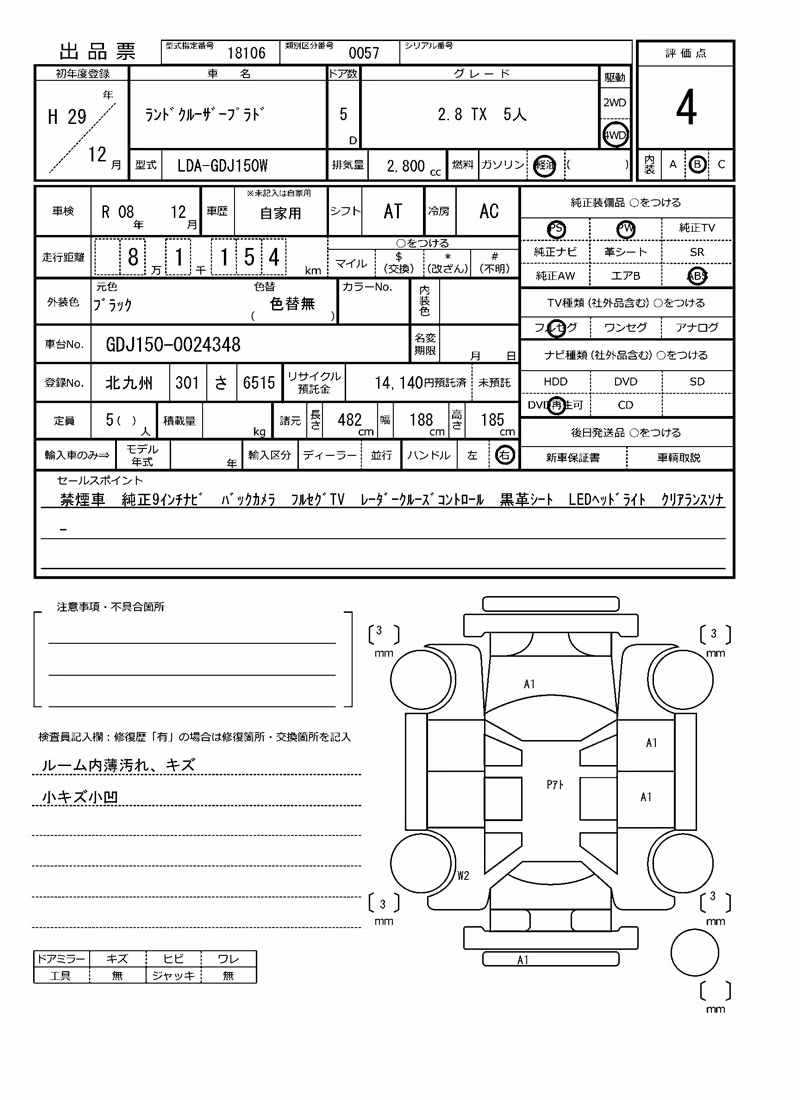 出品票 型式指定番号 18106 類別区分番号 0057 シリアル番号
評価点
初年度登録 車名 ドア数 グレード 駆動
H 29 年 ランドクルーザープラド 5 D 2.8 TX 5人 2WD
4WD
4
12 月 型式 LDA-GDJ150W 排気量 2,800 cc 燃料 ガソリン 軽油 ( ) 内装 A B C
車検 R 08 年 12 月 車歴 ※未記入は自家用 自家用 シフト AT 冷房 AC
走行距離 8 万 1 千 1 5 4 km ○をつける
マイル $ (交換) * (改ざん) # (不明)
外装色 元色 ブラック 色替 ( 色替無 ) カラーNo. 内装色
車台No. GDJ150-0024348 名変期限 月 日
登録No. 北九州 301 さ 6515 リサイクル預託金 14,140円預託済 未預託
定員 5 ( ) 人 積載量 kg 諸元 長さ 482 cm 幅 188 cm 高さ 185 cm
輸入車のみ⇒ モデル年式 年 輸入区分 ディーラー 並行 ハンドル 左 右
純正装備品 ○をつける
PS PW 純正TV
純正ナビ 革シート SR
純正AW エアB ABS
TV種類 (社外品含む) ○をつける
フルセグ ワンセグ アナログ
ナビ種類 (社外品含む) ○をつける
HDD DVD SD
DVD再生可 CD
後日発送品 ○をつける
新車保証書 車輌取説
セールスポイント
禁煙車 純正9インチナビ バックカメラ フルセグTV レーダークルーズコントロール 黒革シート LEDヘッドライト クリアランスソナ
ー
注意事項・不具合箇所
検査員記入欄:修復歴「有」の場合は修復箇所・交換箇所を記入
ルーム内薄汚れ、キズ
小キズ小凹
ドアミラー キズ ヒビ ワレ
工具 無 ジャッキ 無
[ 3 ] mm
[ 3 ] mm
A1
A1
Pアト
A1
W2
[ 3 ] mm
[ 3 ] mm
A1
[ ] mm